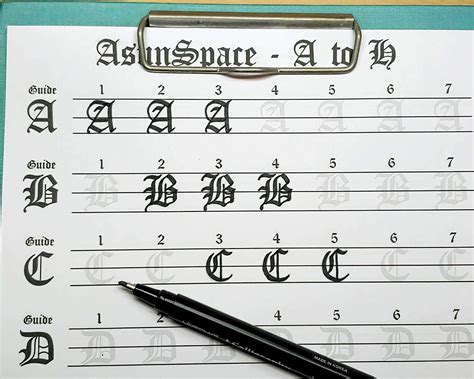 AsunSpace - A to H
Guide 1 2 3 4 5 6 7
A A A A A A A A
Guide 1 2 3 4 5 6 7
B B B B B B B B
Guide 1 2 3 4 5 6 7
C C C C C C C C
Guide 1 2 4 5 6 7
D D D D D D
MADE IN KOREA